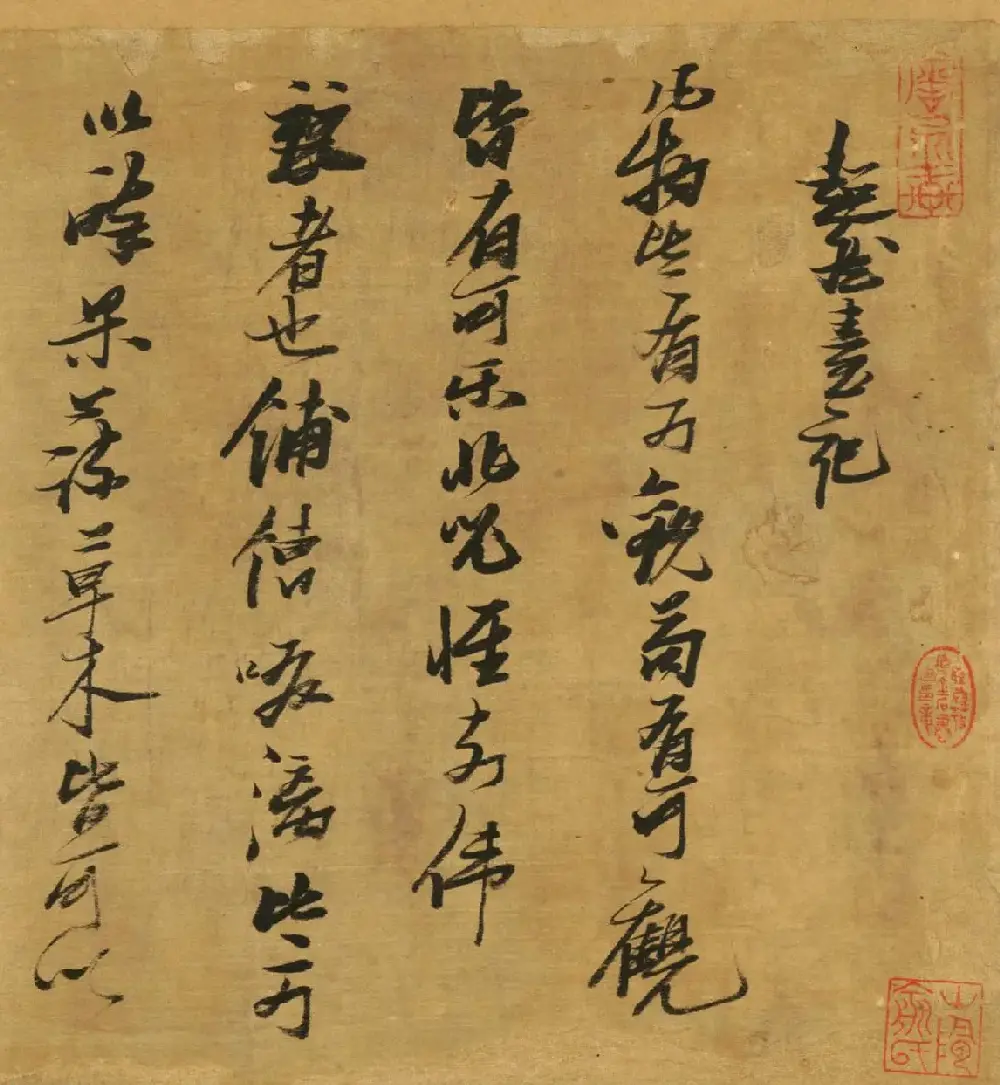 超然臺記
凡物皆有可觀苟有可觀
皆有可樂非必恠奇偉
麗者也餔糟啜漓皆可
以醉果蔬草木皆可以
山陰俞氏